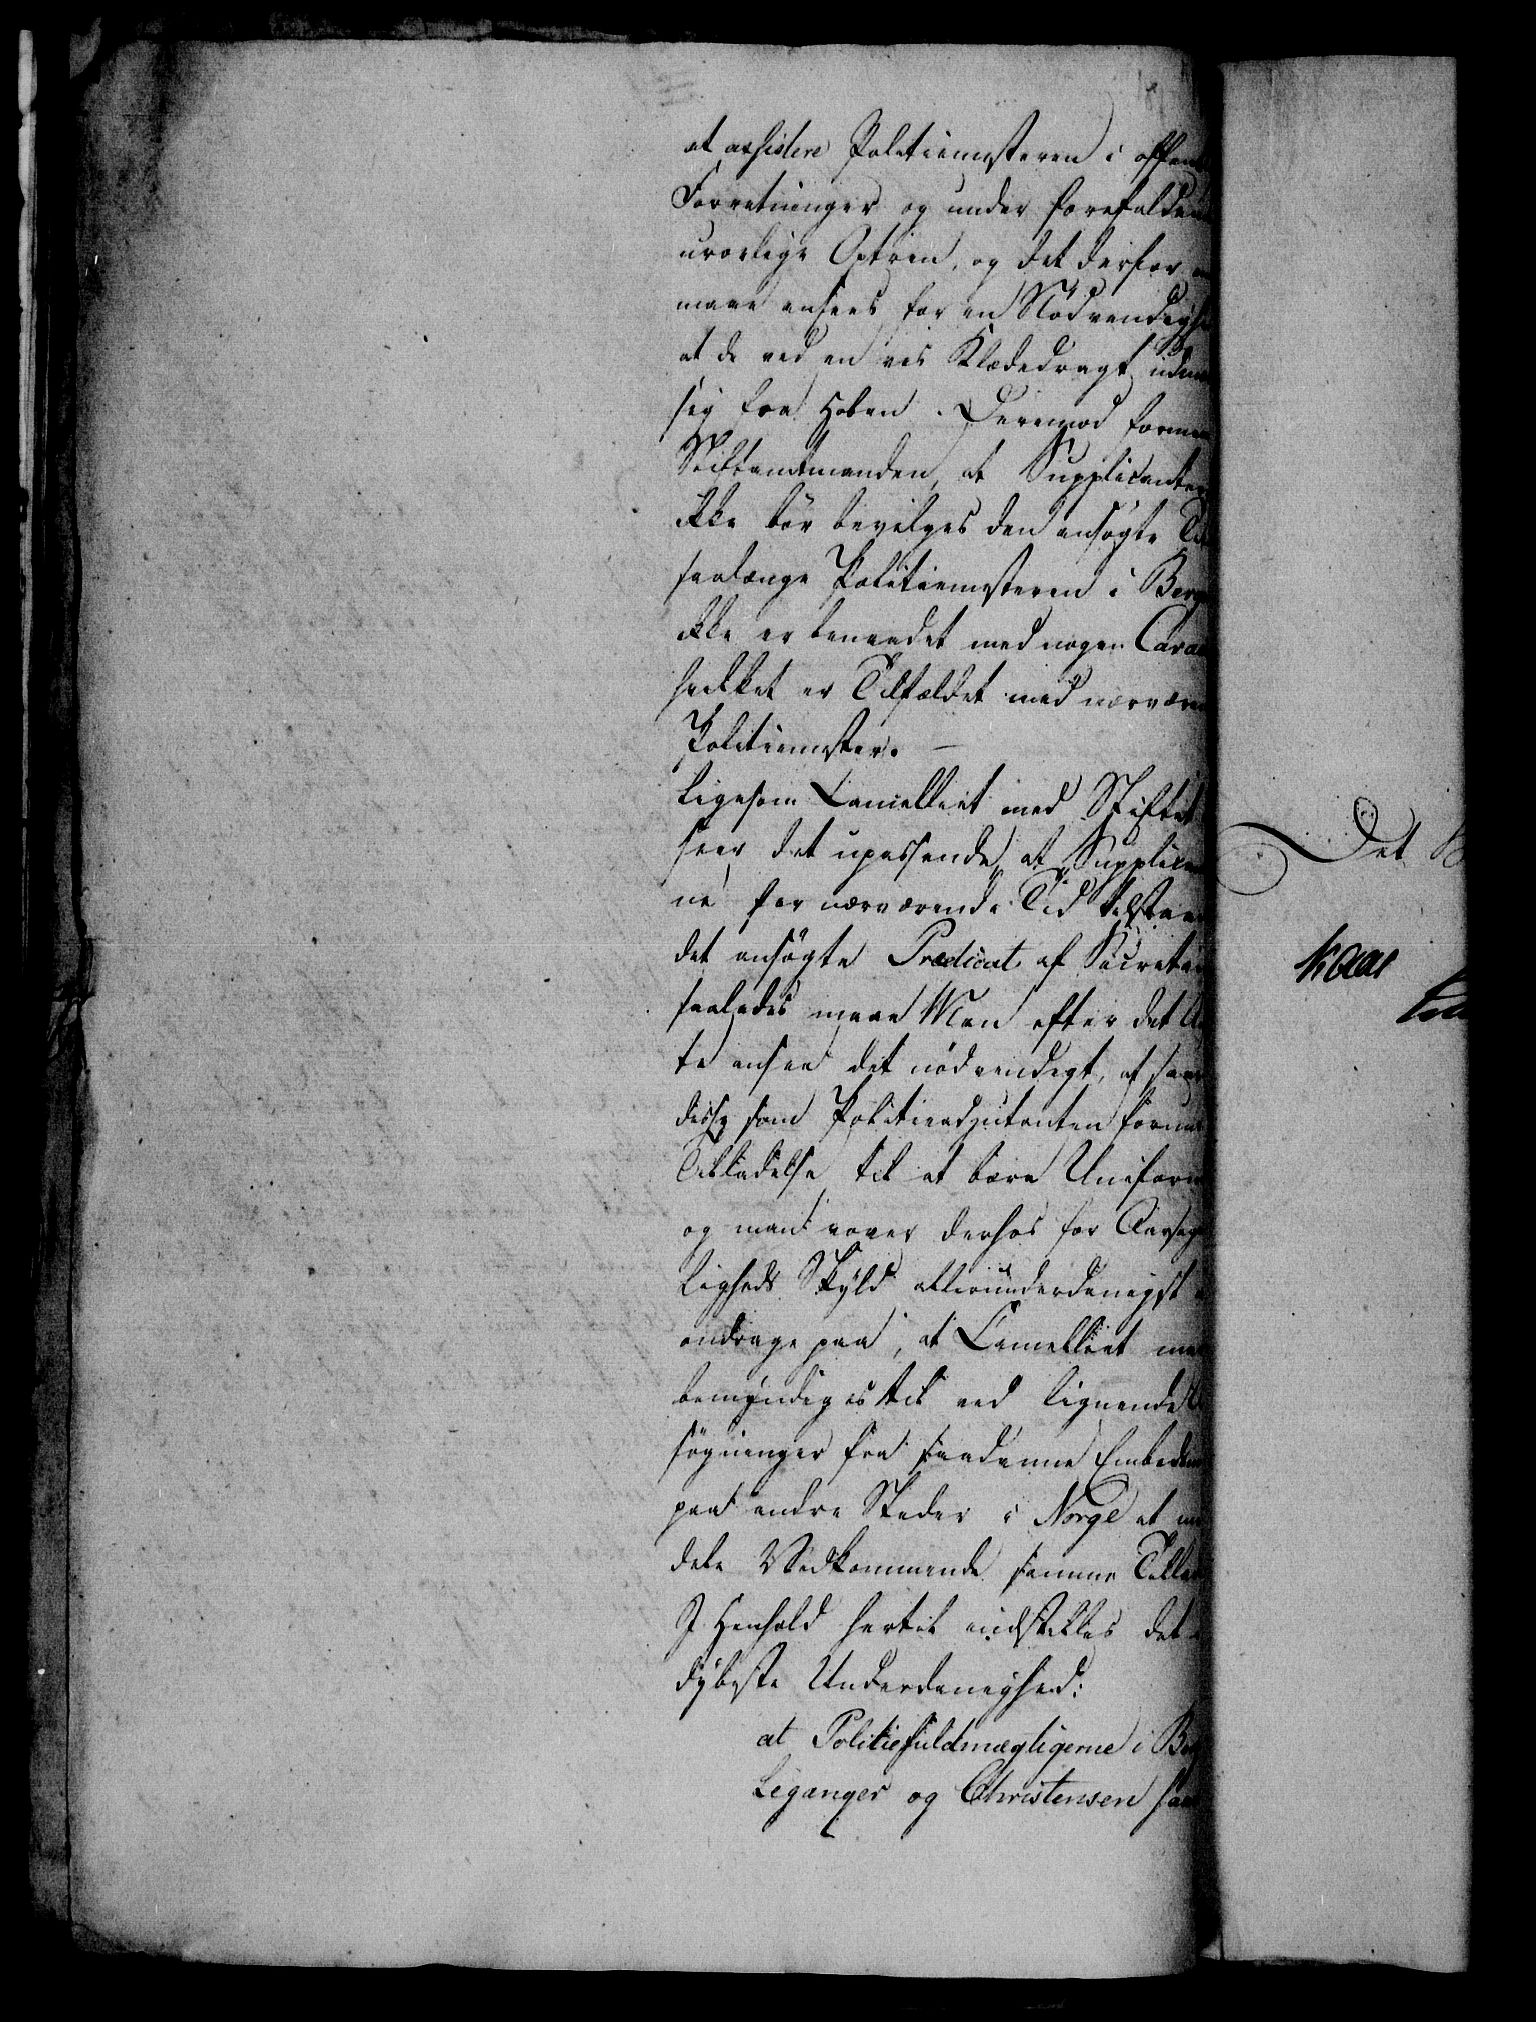 at assistere Politiemesteren i offent
Forretninger og under forefalden
urolige Optrin, og det derfor
maae ansees for en Nödvendighe
at de ved en vis Klædedragt udmær
sig fra Hoben. Derimod forme
Stiftamtmanden, at Supplicanter
ikke bör bevilges den ansögte Tit
saalænge Politiemesteren i Berg
ikke er benaadet med nogen Carac
hvilket er Tilfældet med nærvære
Politiemester. —
Ligesom Cancelliet med Stiftet
seer det upassende, at Supplican
ne for nærværende Tid tilstaae
det ansögte Prædicat af Secretai
saaledes maae Man efter det A
te ansee det nödvendigt, at saav
disse som Politieadjutanten forun
Tilladelse til at bære Uniform
og man vover derhos for
ligheds Skyld allerunderdanigst
andrage paa, at Cancelliet maa
bemyndiges til ved lignende A
sögninger fra saadanne Embedsm
paa andre Steder i Norge at m
dele Vedkommende samme Tillad
I Henhold hertil indstilles det
dybeste Underdanighed:
at Politiefuldmægtigerne i Be
Leganger og Christensen saa
Det